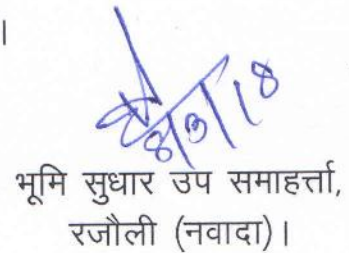 ।
8/3/18
भूमि सुधार उप समाहर्त्ता,
रजौली (नवादा)।